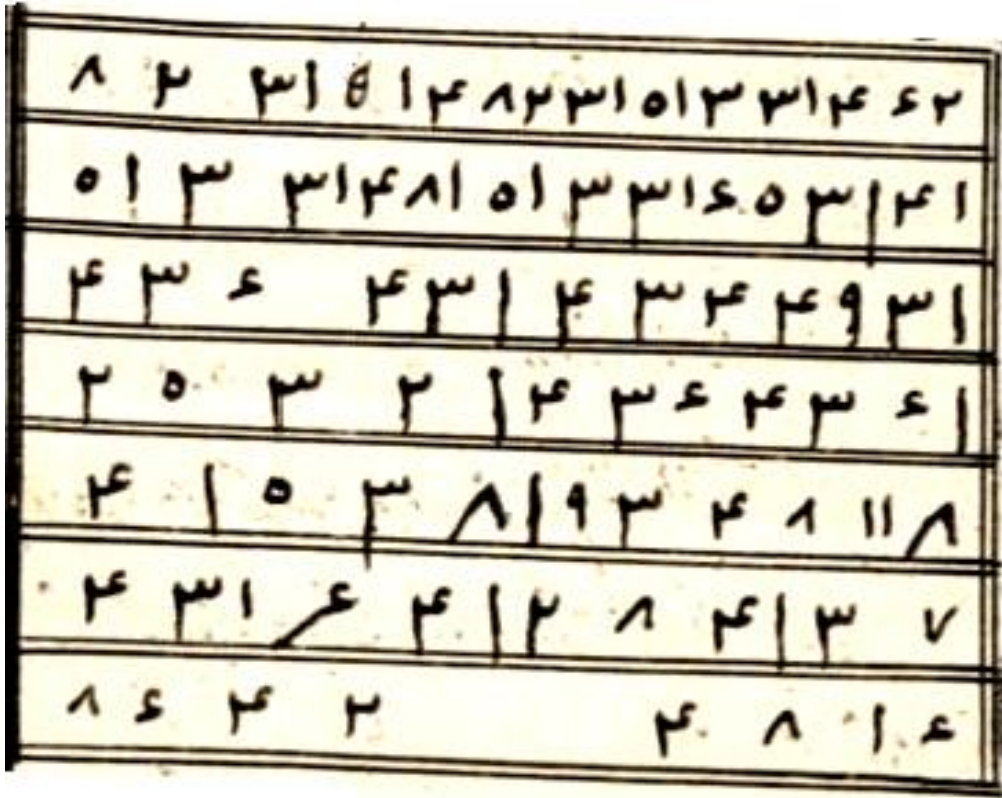 ۸ ۲ ۳۱ ۵ ۱ ۴ ۸ ۲ ۳۱ ۵۱ ۳ ۳۱ ۴ ۶ ۲
۵۱ ۳ ۳۱ ۴ ۸۱ ۵۱ ۳ ۳۱ ۶ ۵ ۳ ۱ ۴ ۱
۴ ۳ ۶ ۴ ۳ ۱ ۴ ۳ ۴ ۴ ۹ ۳ ۱
۲ ۵ ۳ ۲ ۱ ۴ ۳ ۶ ۴ ۳ ۶ ۱
۴ ۱ ۵ ۳ ۸ ۱ ۹ ۳ ۴ ۸ ۱۱ ۸
۴ ۳۱ ۶ ۴ ۱ ۲ ۸ ۴ ۱ ۳ ۷
۸ ۶ ۴ ۲ ۴ ۸ ۱ ۶